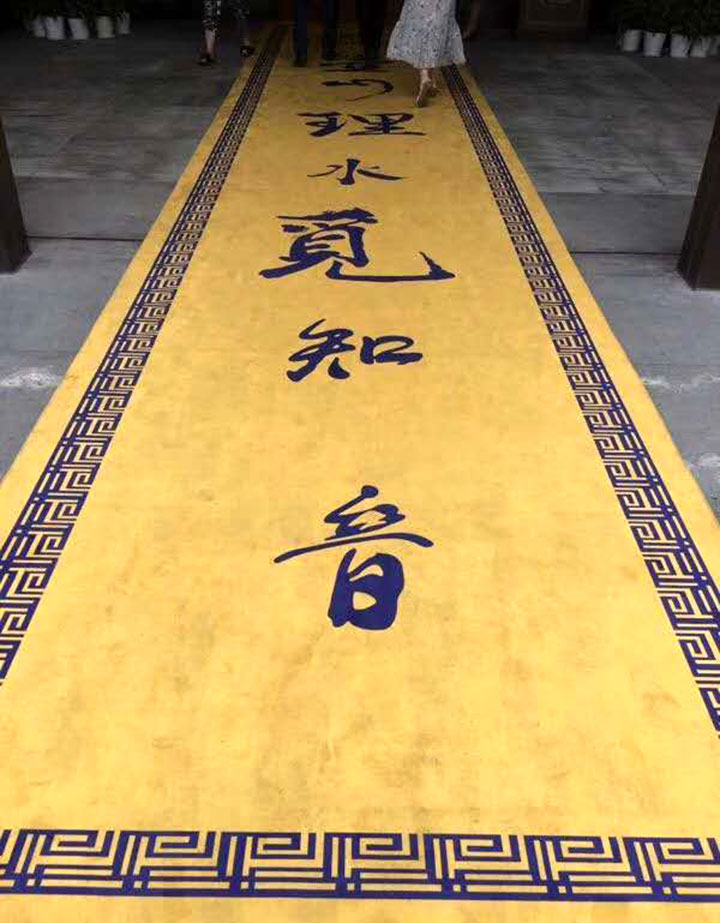 山理水覓知音